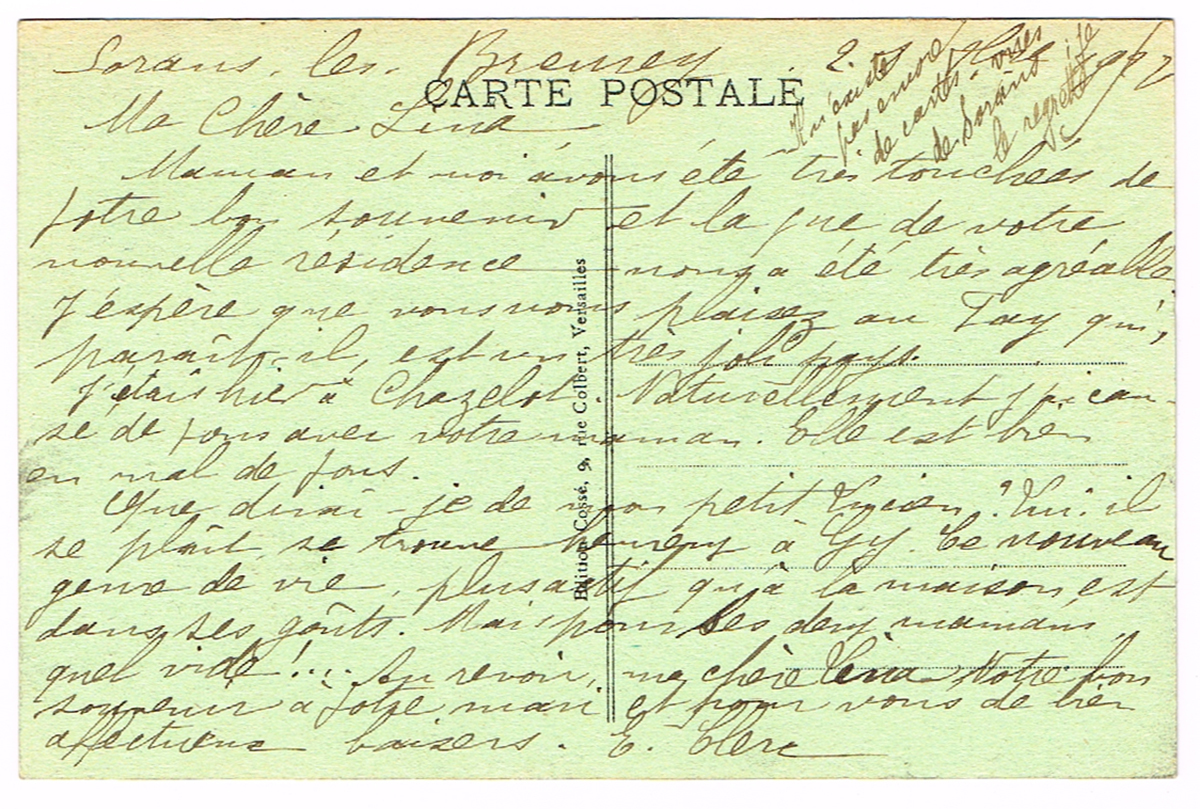 Sorans-les-Breurey 2
CARTE POSTALE
Il n'existe
pas encore
de cartes-vues
de Sorans je
le regrette
Ma Chère Lina
Maman et moi avons été très touchées de
votre bon souvenir et la vue de votre
nouvelle résidence nous a été très agréable
J'espère que vous vous plaisez au Tay qui,
paraît-il, est un très joli pays.
J'étais hier à Chazelot. Naturellement j'ai cau-
sé de vous avec votre maman. Elle est bien
en mal de vous.
Que dirai-je de mon petit Lucien? Lui. il
se plaît se trouve heureux à Gy. Ce nouveau
genre de vie, plus actif qu'à la maison, est
dans ses goûts. Mais pour les deux mamans
quel vide!... Au revoir, ma chère Lina Notre bon
souvenir à votre mari et pour vous de bien
affectueux baisers. E. Clerc
Edition Cossé, 9, rue Colbert, Versailles